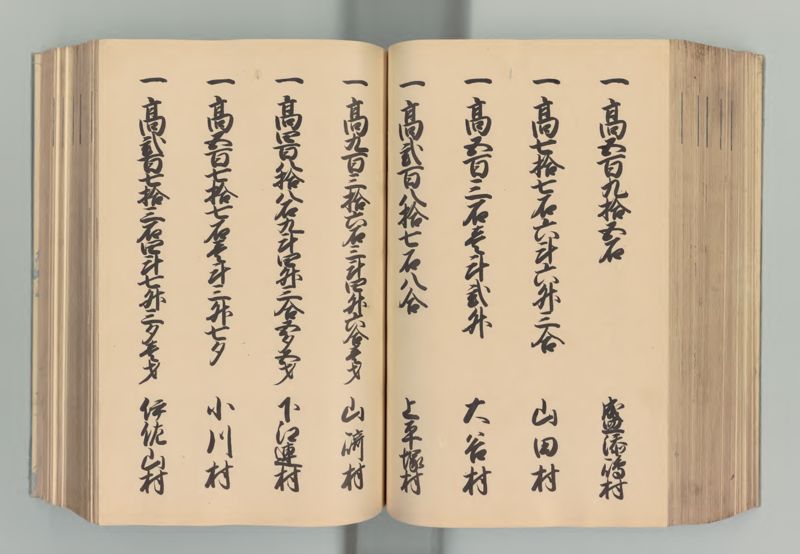 一高五百九拾五石 盛添嶋村
一高七拾七石六斗六升三合 山田村
一高五百三石壱斗弐升 大谷村
一高弐百八拾七石八合 上平塚村
一高九百三拾六石三斗四升六合壱才 山崎村
一高四百八拾八石九斗四升三合五夕五才 下江連村
一高五百七拾七石壱斗三升七夕 小川村
一高弐百七拾三石四斗七升三夕壱才 伊佐山村